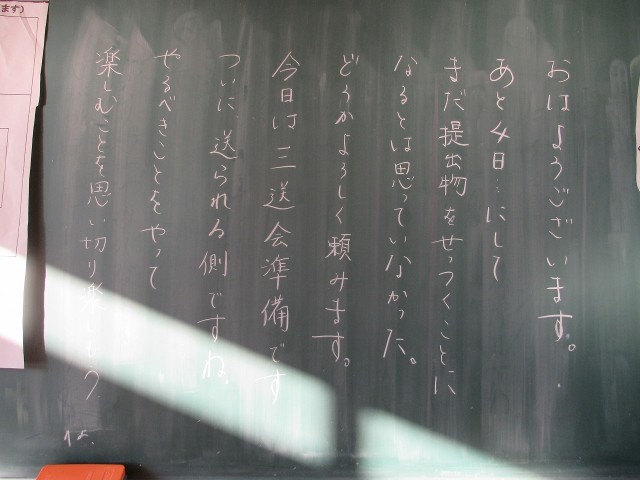 おはようございます。
あと4日…にして
まだ提出物をせっつくことに
なるとは思っていなかった。
どうかよろしく頼みます。
今日は三送会準備です
ついに送られる側ですね。
やるべきことをやって
楽しむことを思い切り楽しもう
ます)